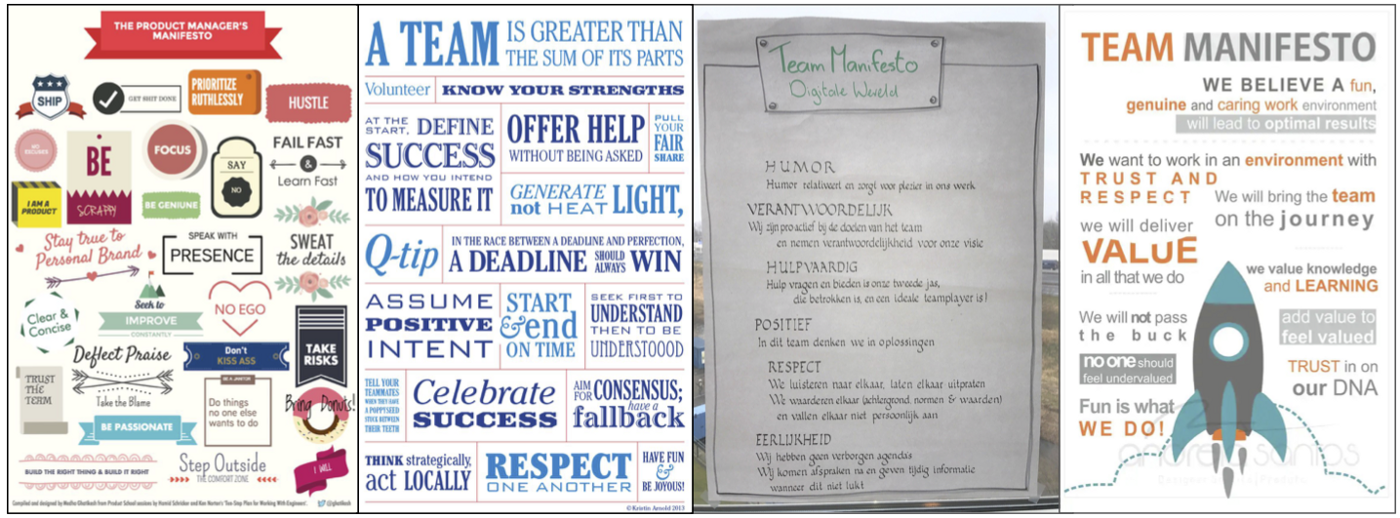 THE PRODUCT MANAGER'S
MANIFESTO
SHIP
GET SHIT DONE
PRIORITIZE
RUTHLESSLY
HUSTLE
NO
EXCUSES
BE
SCRAPPY
FOCUS
SAY
NO
FAIL FAST
&
Learn Fast
I AM A
PRODUCT
BE GENIUNE
Stay true to
Personal Brand
SPEAK WITH
PRESENCE
SWEAT
the details
Clear &
Concise
Seek to
IMPROVE
CONSTANTLY
NO EGO
Deflect Praise
Take the Blame
Don't
KISS ASS
TAKE
RISKS
TRUST
THE
TEAM
BE PASSIONATE
BE A JANITOR
Do things
no one else
wants to do
Bring Donuts!
BUILD THE RIGHT THING & BUILD IT RIGHT
Step Outside
THE COMFORT ZONE
I WILL
A TEAM IS GREATER THAN
THE SUM OF ITS PARTS
Volunteer
KNOW YOUR STRENGTHS
AT THE
START, DEFINE
SUCCESS
AND HOW YOU INTEND
TO MEASURE IT
OFFER HELP
WITHOUT BEING ASKED
PULL
YOUR
FAIR
SHARE
GENERATE
not HEAT LIGHT,
Q-tip
IN THE RACE BETWEEN A DEADLINE AND PERFECTION,
A DEADLINE SHOULD ALWAYS WIN
ASSUME
POSITIVE
INTENT
START
&end
ON TIME
SEEK FIRST TO
UNDERSTAND
THEN TO BE
UNDERSTOOOD
TELL YOUR
TEAMMATES
WHEN THEY HAVE
A POPPYSEED
STUCK BETWEEN
THEIR TEETH
Celebrate
SUCCESS
AIM
FOR CONSENSUS;
have a
fallback
THINK strategically,
act LOCALLY
RESPECT
ONE ANOTHER
HAVE FUN
&
BE JOYOUS!
© Kristin Arnold 2013
Team Manifesto
Digitale Wereld
HUMOR
Humor relativeert en zorgt voor plezier in ons werk
VERANTWOORDELIJK
Wij zijn proactief bij de doelen van het team
en nemen verantwoordelijkheid voor onze visie
HULPVAARDIG
Hulp vragen en bieden is onze tweede jas,
die betrokken is, en een ideale teamplayer is!
POSITIEF
In dit team denken we in oplossingen
RESPECT
We luisteren naar elkaar, laten elkaar uitpraten
We waarderen elkaar (achtergrond, normen & waarden)
en vallen elkaar niet persoonlijk aan
EERLIJKHEID
Wij hebben geen verborgen agenda's
Wij komen afspraken na en geven tijdig informatie
wanneer dit niet lukt
TEAM MANIFESTO
WE BELIEVE A fun,
genuine and caring work environment
will lead to optimal results
We want to work in an environment with
TRUST AND
RESPECT
We will bring the team
on the journey
we will deliver
VALUE
in all that we do
we value knowledge
and LEARNING
We will not pass
the buck
add value to
feel valued
no one should
feel undervalued
TRUST in on
our DNA
Fun is what
WE DO!